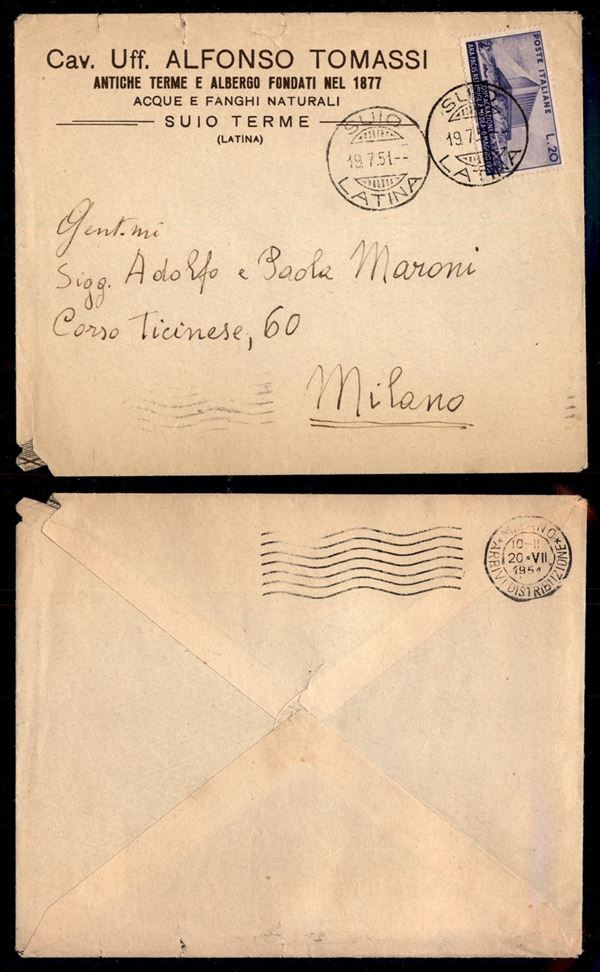 Cav. Uff. ALFONSO TOMASSI
ANTICHE TERME E ALBERGO FONDATI NEL 1877
ACQUE E FANGHI NATURALI
SUIO TERME
(LATINA)
POSTE ITALIANE
L. 20
SUIO
19.7.51.--
LATINA
SUIO
19.7
LATINA
Gent.mi
Sigg. Adolfo e Paola Maroni
Corso Ticinese, 60
Milano
MILANO
20·VII
1951
*ARRIVI DISTRIBUZIONE*